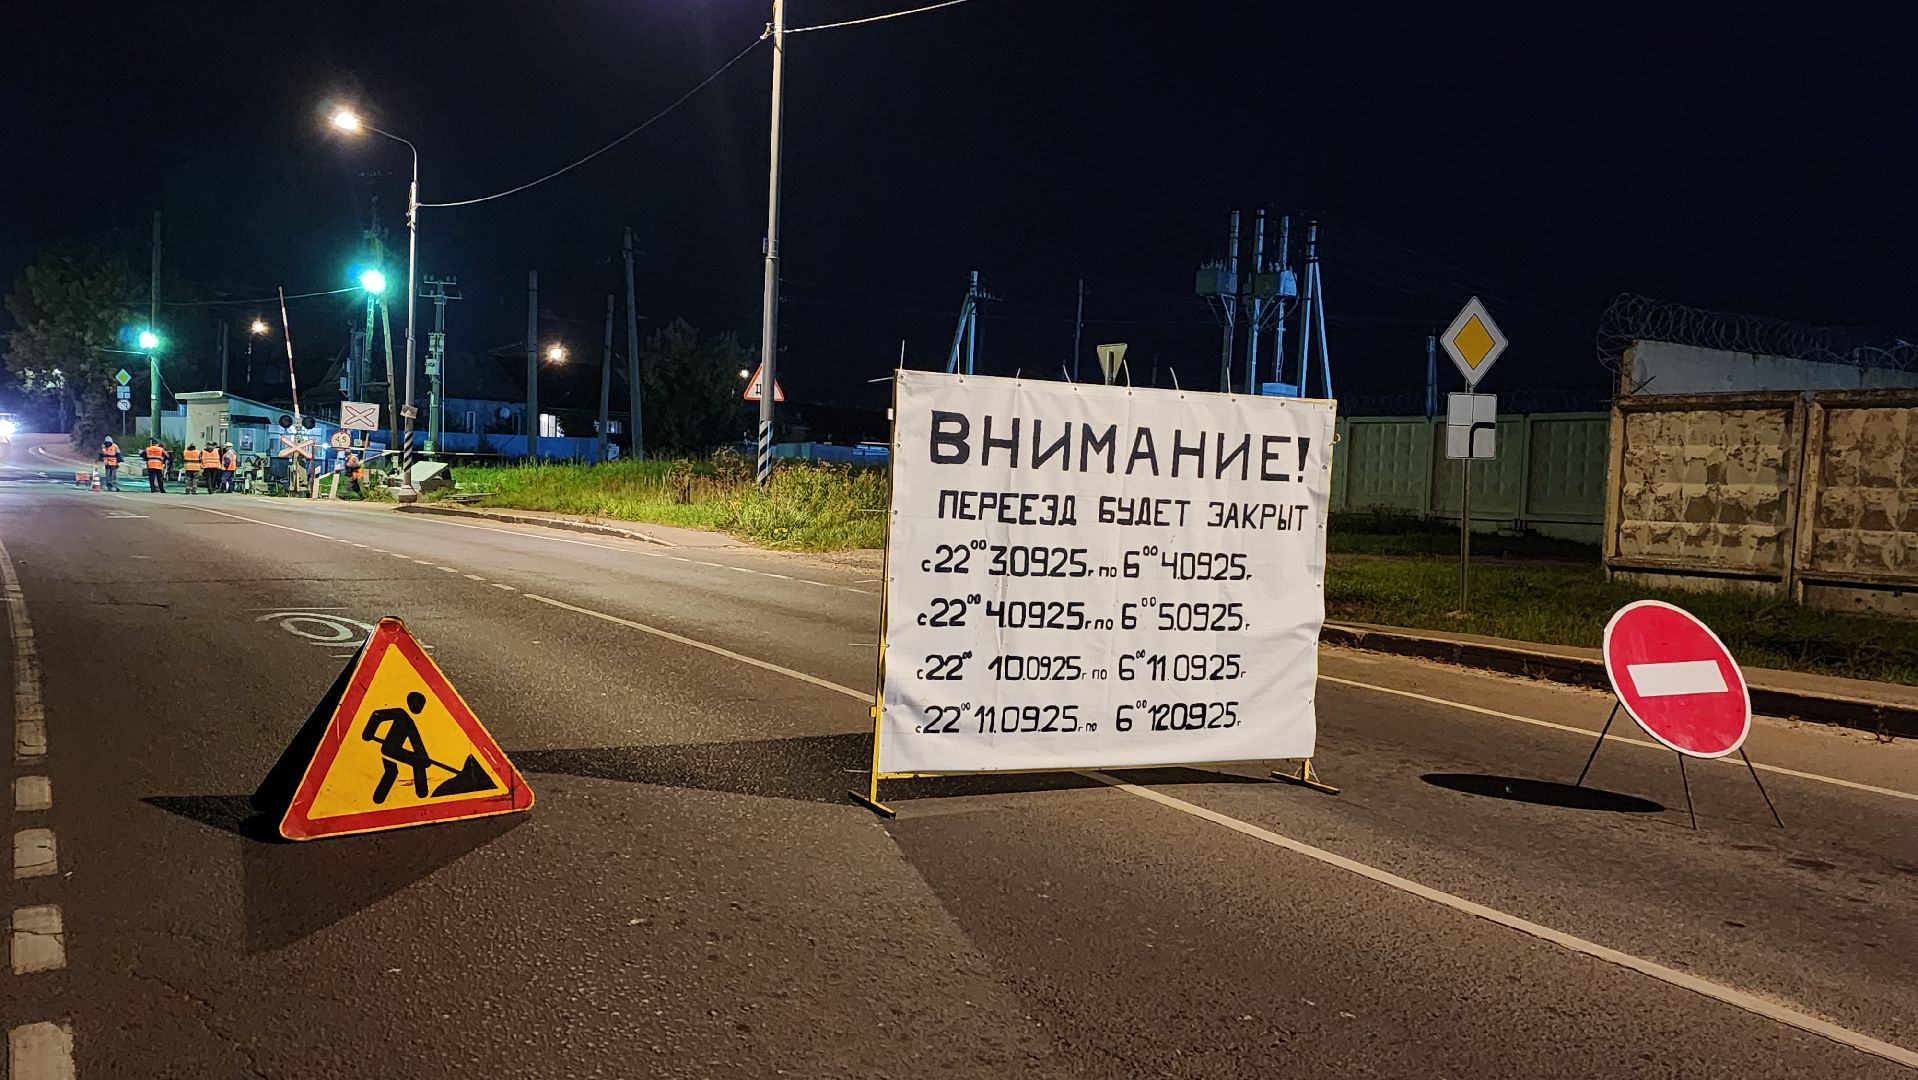 ВНИМАНИЕ!
ПЕРЕЕЗД БУДЕТ ЗАКРЫТ
с 22⁰⁰ 3.09.25.г по 6⁰⁰ 4.09.25.г
с 22⁰⁰ 4.09.25.г по 6⁰⁰ 5.09.25.г
с 22⁰⁰ 10.09.25.г по 6⁰⁰ 11.09.25.г
с 22⁰⁰ 11.09.25.г по 6⁰⁰ 12.09.25.г
4,5